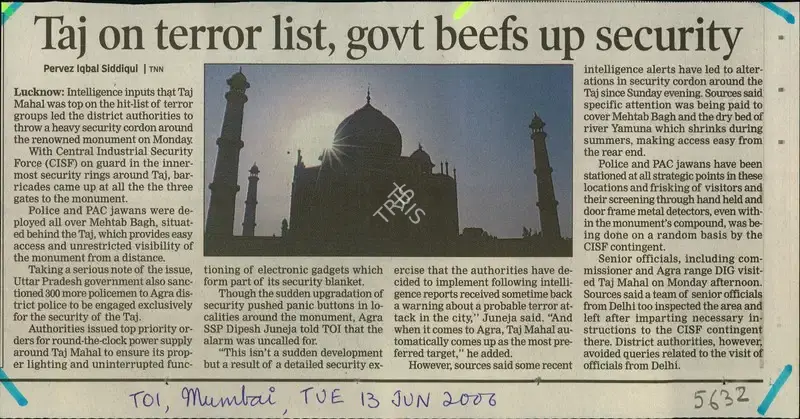 Taj on terror list, govt beefs up security
Pervez Iqbal Siddiqui | TNN
Lucknow: Intelligence inputs that Taj
Mahal was top on the hit-list of terror
groups led the district authorities to
throw a heavy security cordon around
the renowned monument on Monday.
With Central Industrial Security
Force (CISF) on guard in the inner-
most security rings around Taj, bar-
ricades came up at all the the three
gates to the monument.
Police and PAC jawans were de-
ployed all over Mehtab Bagh, situat-
ed behind the Taj, which provides easy
access and unrestricted visibility of
the monument from a distance.
Taking a serious note of the issue,
Uttar Pradesh government also sanc-
tioned 300 more policemen to Agra dis-
trict police to be engaged exclusively
for the security of the Taj.
Authorities issued top priority or-
ders for round-the-clock power supply
around Taj Mahal to ensure its prop-
er lighting and uninterrupted func-
tioning of electronic gadgets which
form part of its security blanket.
Though the sudden upgradation of
security pushed panic buttons in lo-
calities around the monument, Agra
SSP Dipesh Juneja told TOI that the
alarm was uncalled for.
"This isn't a sudden development
but a result of a detailed security ex-
ercise that the authorities have de-
cided to implement following intelli-
gence reports received sometime back
a warning about a probable terror at-
tack in the city," Juneja said. "And
when it comes to Agra, Taj Mahal au-
tomatically comes up as the most pre-
ferred target," he added.
However, sources said some recent
intelligence alerts have led to alter-
ations in security cordon around the
Taj since Sunday evening. Sources said
specific attention was being paid to
cover Mehtab Bagh and the dry bed of
river Yamuna which shrinks during
summers, making access easy from
the rear end.
Police and PAC jawans have been
stationed at all strategic points in these
locations and frisking of visitors and
their screening through hand held and
door frame metal detectors, even with-
in the monument's compound, was be-
ing done on a random basis by the
CISF contingent.
Senior officials, including com-
missioner and Agra range DIG visit-
ed Taj Mahal on Monday afternoon.
Sources said a team of senior officials
from Delhi too inspected the area and
left after imparting necessary in-
structions to the CISF contingent
there. District authorities, however,
avoided queries related to the visit of
officials from Delhi.
TOI, Mumbai, TUE 13 JUN 2006
5632